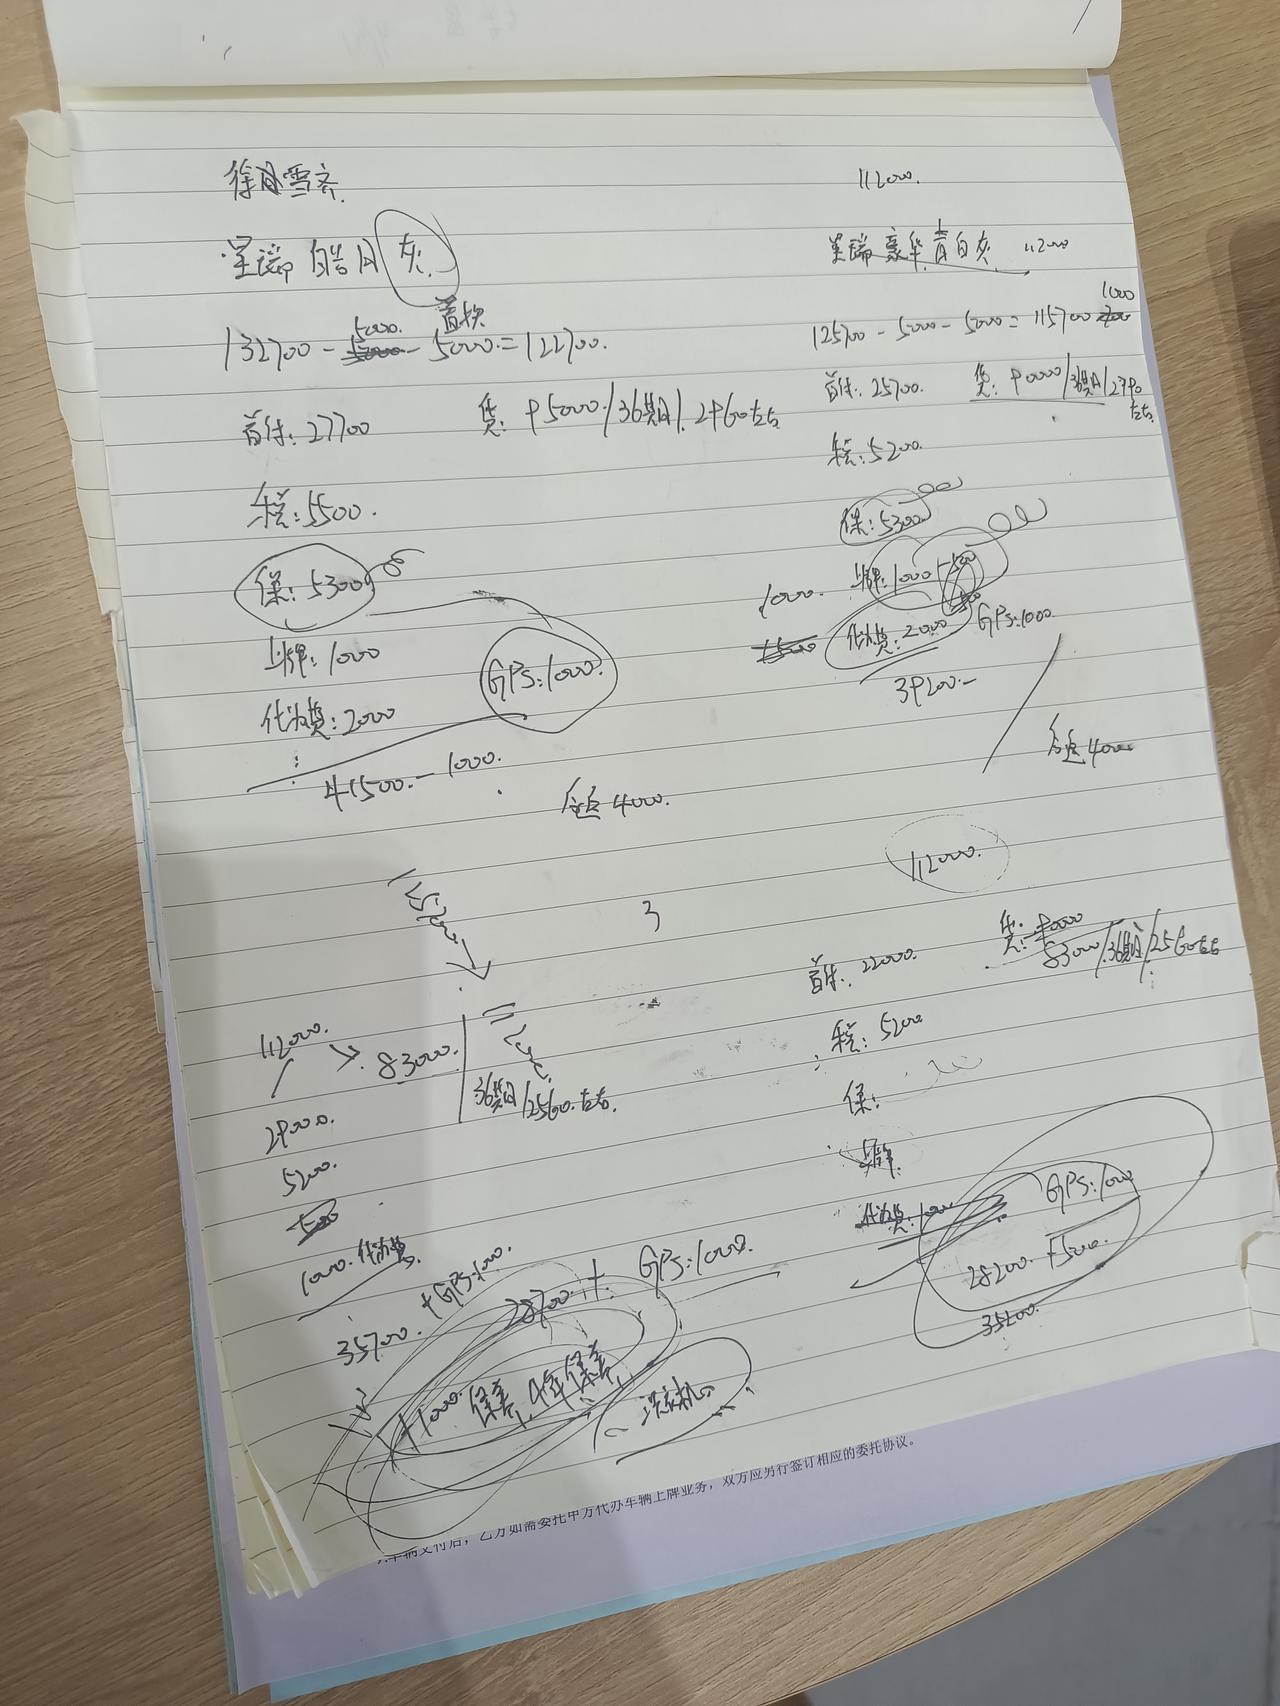 星瑞 皓月 灰
5000. 置换
132700 - 5000 - 5000 = 122700.
首付: 27700 贷: 95000/36期/2960左右
税: 5500.
保: 5300
上牌: 1000
GPS: 1000.
代办费: 2000
41500. - 1000.
返 4000.
112000.
星瑞 豪华 青白灰 112000
1000
125700 - 5000 - 5000 = 115700
首付: 25700. 贷: 90000/36期/2790左右
税: 5200.
保: 5300
上牌: 1000 - 500
1000.
1500 代办费: 2000 GPS: 1000.
39200.-
返 4000
112000.
首付: 22000. 贷: 90000
83000/36期/2560左右
税: 5200
保:
代办费: 1000 GPS: 1000
28200. +500.
35200.
125700 →
3
112000. → 83000. 112000.
36期/2560.左右.
29000.
5200.
500
1000. 代办费
35700. +GPS: 1000.
28700. + GPS: 1000.
+1000. 保养,
洗衣机
双方应另行签订相应的委托协议。
乙方如需委托甲方代办车辆上牌业务,